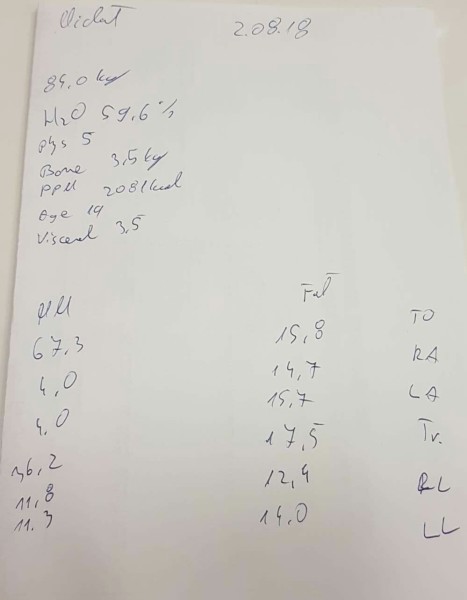 2.08.18
84,0 kg
H2O 59,6 %
phys 5
Bone 3,5 kg
PPM 2081 kcal
age 19
Visceral 3,5
MM Fat
67,3 15,8 TO
4,0 14,7 RA
4,0 15,7 LA
36,2 17,5 Tr.
11,8 12,4 RL
11.3 14,0 LL